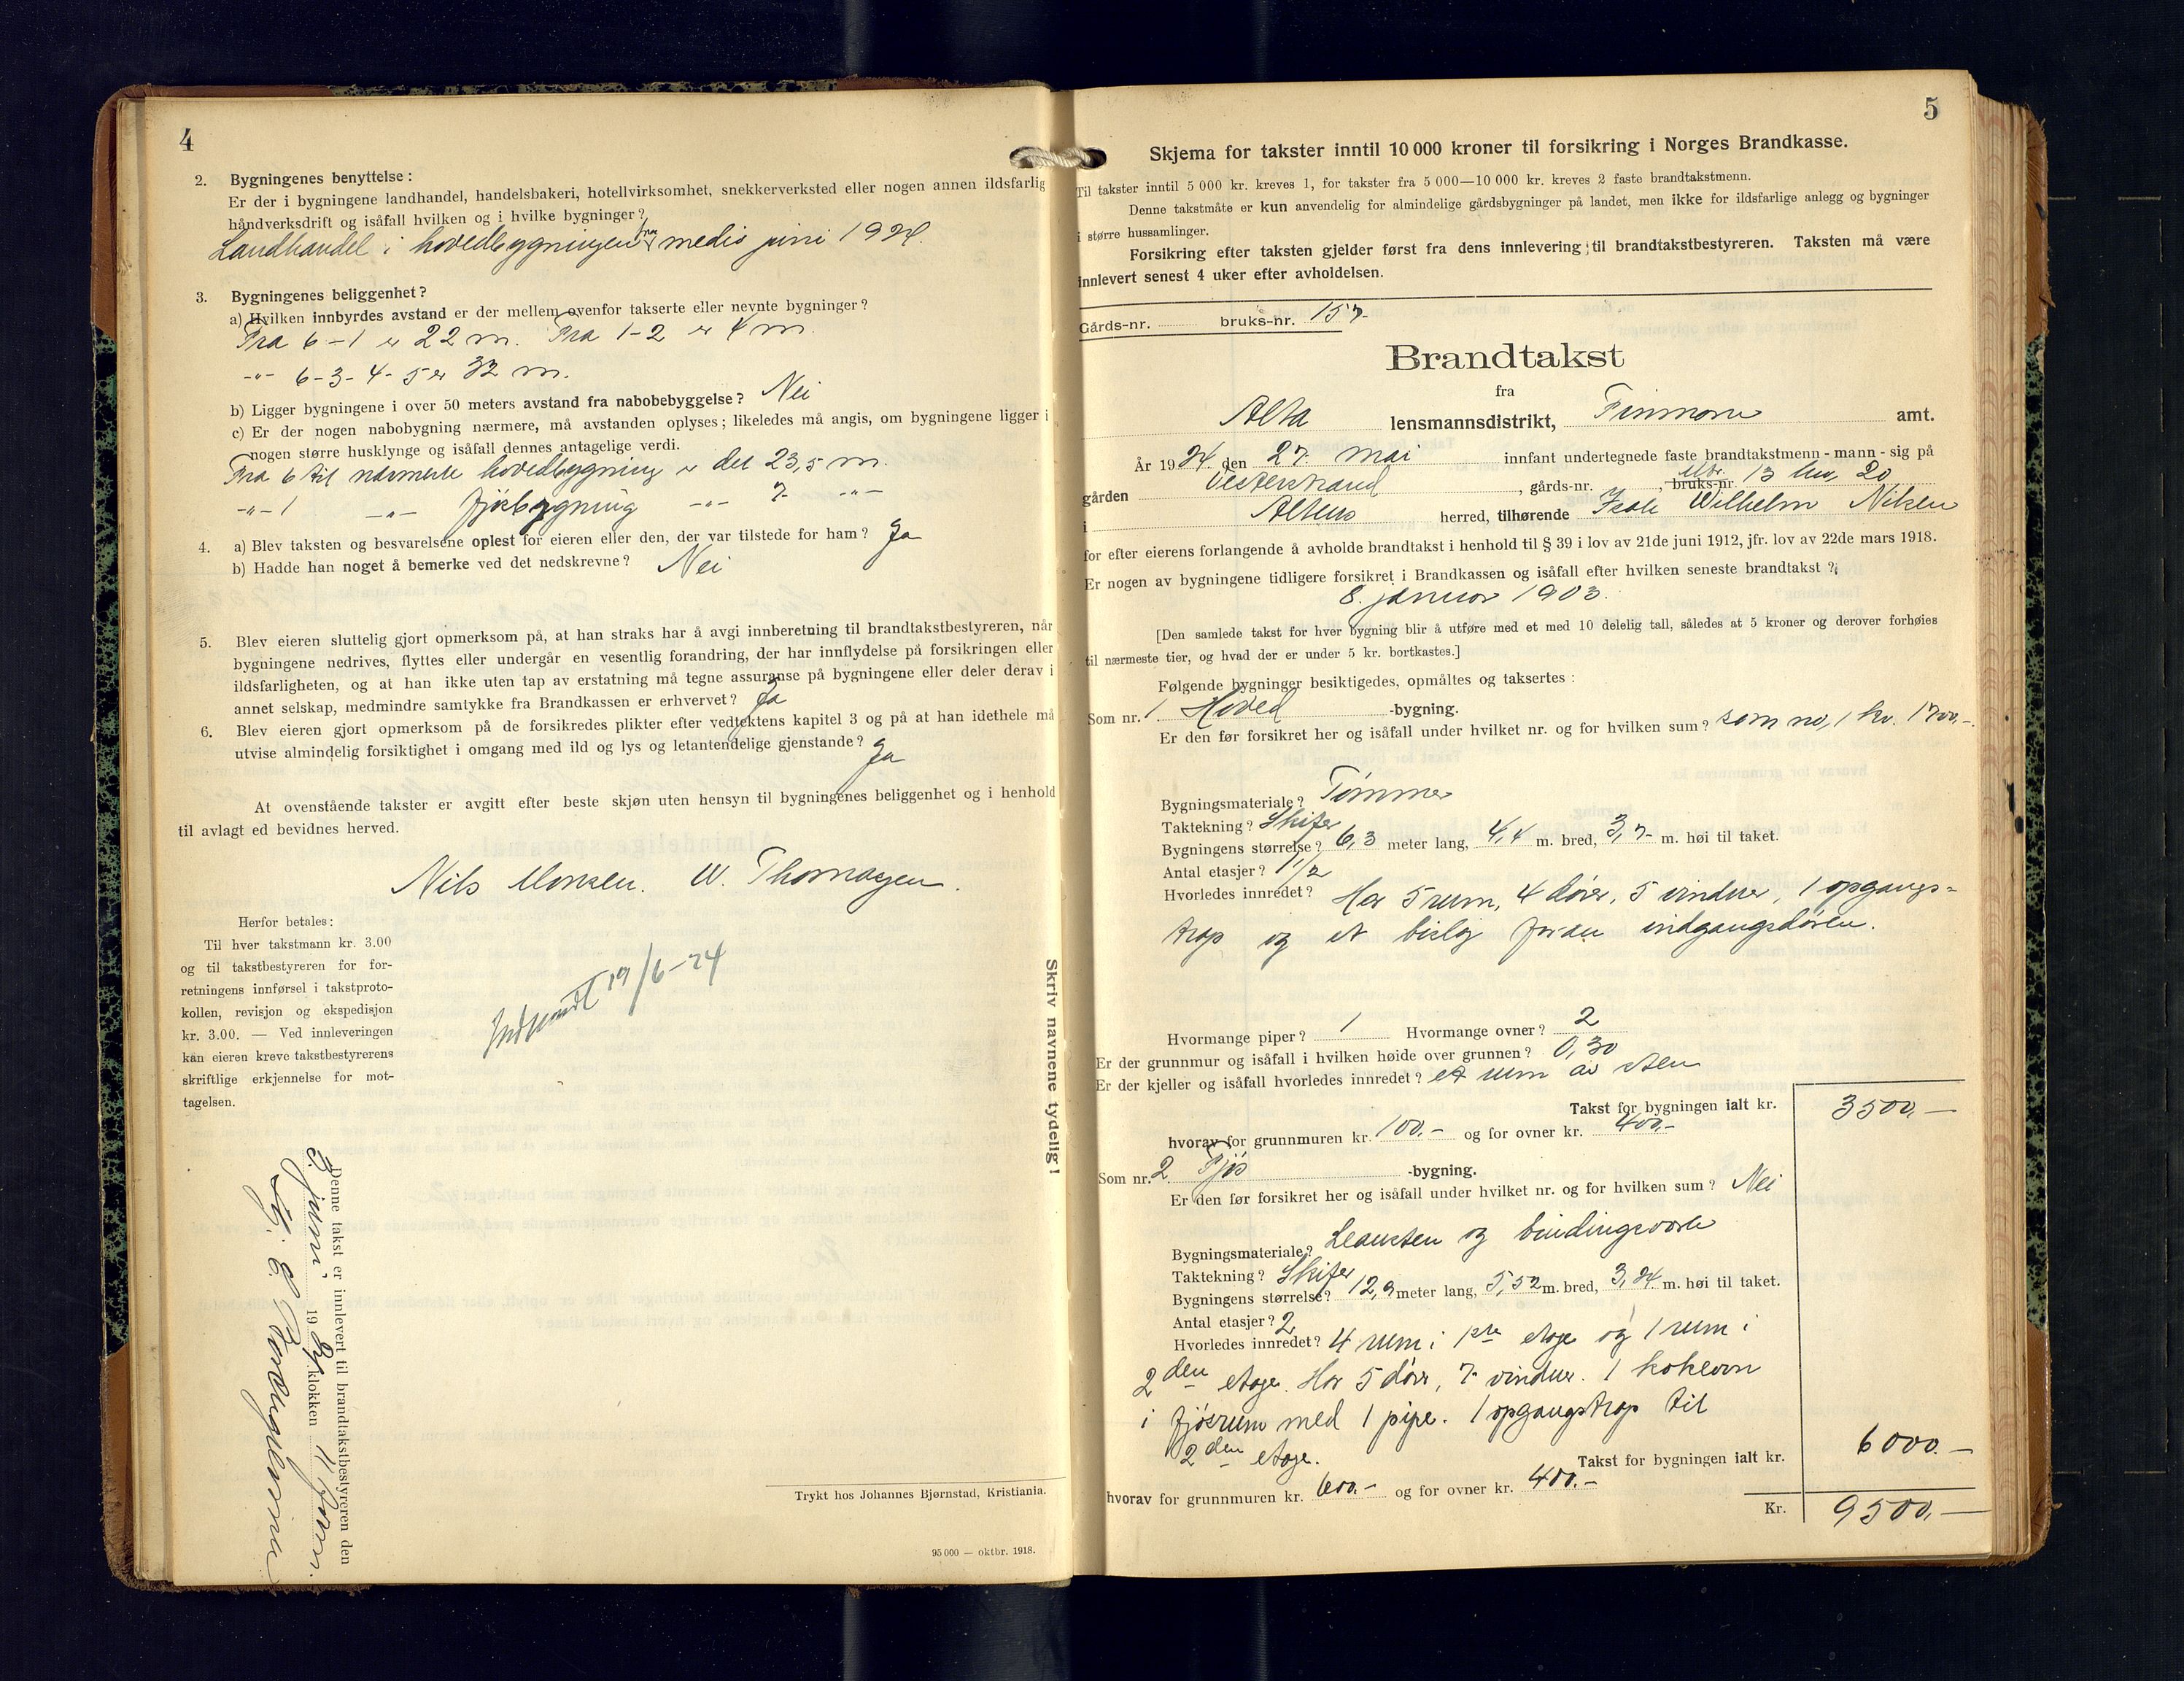 4
2. Bygningenes benyttelse:
Er der i bygningene landhandel, handelsbakeri, hotellvirksomhet, snekkerverksted eller nogen annen ildsfarlig
håndverksdrift og isåfall hvilken og i hvilke bygninger?
Landhandel i hovedbygningen fra medio juni 1924.
3. Bygningenes beliggenhet?
a) Hvilken innbyrdes avstand er der mellem ovenfor takserte eller nevnte bygninger?
Fra 6-1 er 22 m. Fra 1-2 er 4 m.
-"- 6-3-4-5 er 32 m.
b) Ligger bygningene i over 50 meters avstand fra nabobebyggelse? Nei
c) Er der nogen nabobygning nærmere, må avstanden oplyses; likeledes må angis, om bygningene ligger i
nogen større husklynge og isåfall dennes antagelige verdi.
Fra 6 til nærmeste hovedbygning er det 23,5 m.
-"- 1 -"- fjøsbygning -"- 7 -"-
4. a) Blev taksten og besvarelsene oplest for eieren eller den, der var tilstede for ham? Ja
b) Hadde han noget å bemerke ved det nedskrevne? Nei
5. Blev eieren sluttelig gjort opmerksom på, at han straks har å avgi innberetning til brandtakstbestyreren, når
bygningene nedrives, flyttes eller undergår en vesentlig forandring, der har innflydelse på forsikringen eller
ildsfarligheten, og at han ikke uten tap av erstatning må tegne assuranse på bygningene eller deler derav i
annet selskap, medmindre samtykke fra Brandkassen er erhvervet? Ja
6. Blev eieren gjort opmerksom på de forsikredes plikter efter vedtektens kapitel 3 og på at han idethele må
utvise almindelig forsiktighet i omgang med ild og lys og letantendelige gjenstande? Ja
At ovenstående takster er avgitt efter beste skjøn uten hensyn til bygningenes beliggenhet og i henhold
til avlagt ed bevidnes herved.
Nils Monsen. W. Thomasen.
Herfor betales:
Til hver takstmann kr. 3.00
og til takstbestyreren for for-
retningens innførsel i takstproto-
kollen, revisjon og ekspedisjon
kr. 3.00. — Ved innleveringen
kan eieren kreve takstbestyrerens
skriftlige erkjennelse for mot-
tagelsen.
Indsendt 19/6-24
Denne takst er innlevert til brandtakstbestyreren den
3. juni, 1924 klokken 11 form.
Skriv navnene tydelig!
Trykt hos Johannes Bjørnstad, Kristiania.
95 000 — oktbr. 1918.
5
Skjema for takster inntil 10 000 kroner til forsikring i Norges Brandkasse.
Til takster inntil 5 000 kr. kreves 1, for takster fra 5 000—10 000 kr. kreves 2 faste brandtakstmenn.
Denne takstmåte er kun anvendelig for almindelige gårdsbygninger på landet, men ikke for ildsfarlige anlegg og bygninger
i større hussamlinger.
Forsikring efter taksten gjelder først fra dens innlevering til brandtakstbestyreren. Taksten må være
innlevert senest 4 uker efter avholdelsen.
Gårds-nr. bruks-nr. 157
Brandtakst
fra
Alta lensmannsdistrikt, Finmark amt.
År 1924 den 27. mai innfant undertegnede faste brandtakstmenn - mann - sig på
gården Vesterstrand, gårds-nr. , bruks-nr. Mnr. 13 lnr. 20
i Altens herred, tilhørende Isak Wilhelm Nilsen
for efter eierens forlangende å avholde brandtakst i henhold til § 39 i lov av 21de juni 1912, jfr. lov av 22de mars 1918.
Er nogen av bygningene tidligere forsikret i Brandkassen og isåfall efter hvilken seneste brandtakst?
8. januar 1903.
[Den samlede takst for hver bygning blir å utføre med et med 10 delelig tall, således at 5 kroner og derover forhøies
til nærmeste tier, og hvad der er under 5 kr. bortkastes.]
Følgende bygninger besiktigedes, opmåltes og taksertes:
Som nr. 1 Hoved -bygning.
Er den før forsikret her og isåfall under hvilket nr. og for hvilken sum? som no, 1 kr. 1700,-
Bygningsmateriale? Tømmer
Taktekning? Skifer
Bygningens størrelse? 6,3 meter lang, 4,4 m. bred, 3,7 m. høi til taket.
Antal etasjer? 1 1/2
Hvorledes innredet? Har 5 rum, 4 dører, 5 vinduer, 1 opgangs-
trap og et bislag foran indgangsdøren.
Hvormange piper? 1 Hvormange ovner? 2
Er der grunnmur og isåfall i hvilken høide over grunnen? 0,30
Er der kjeller og isåfall hvorledes innredet? et rum av sten
Takst for bygningen ialt kr. 3500,—
hvorav for grunnmuren kr. 100,- og for ovner kr. 400,-
Som nr. 2 Fjøs -bygning.
Er den før forsikret her og isåfall under hvilket nr. og for hvilken sum? Nei
Bygningsmateriale? og bindingsverk
Taktekning? Skifer
Bygningens størrelse? 12,9 meter lang, 5,52 m. bred, 3,24 m. høi til taket.
Antal etasjer? 2
Hvorledes innredet? 4 rum i 1ste etage og 1 rum i
2den etage. Har 5 dører, 7 vinduer. 1 kokeovn
i fjøsrum med 1 pipe. 1 opgangstrap til
2den etage.
Takst for bygningen ialt kr. 6000.—
hvorav for grunnmuren kr. 600.- og for ovner kr. 400.-
Kr. 9500,—